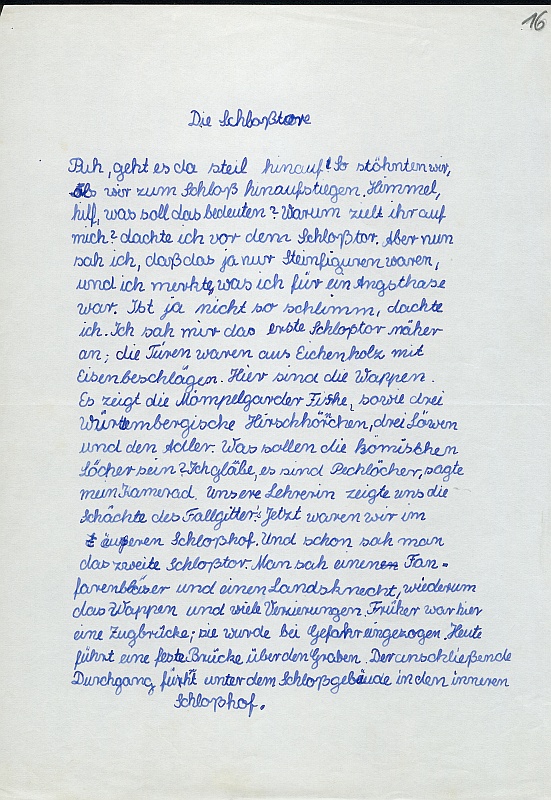 16
Die Schloßtore
Puh, geht es da steil hinauf! So stöhnten wir,
als wir zum Schloß hinaufstiegen. Himmel,
hilf, was soll das bedeuten? Warum zielt ihr auf
mich? dachte ich vor dem Schloßtor. Aber nun
sah ich, daß das ja nur Steinfiguren waren,
und ich merkte, was ich für ein Angsthase
war. Ist ja nicht so schlimm, dachte
ich. Ich sah mir das erste Schloßtor näher
an; die Türen waren aus Eichenholz mit
Eisenbeschlägen. Hier sind die Wappen.
Es zeigt die Mömpelgarder Fishe, sowie drei
Würtembergische Hirschhörchen, drei Löwen
und den Adler. Was sollen die komischen
Löcher sein? Ich gläbe, es sind Pechlöcher, sagte
mein Kamerad. Unsere Lehrerin zeigte uns die
Schächte des Fallgitter's. Jetzt waren wir im
äußeren Schloßhof. Und schon sah man
das zweite Schloßtor. Man sah einen Fan-
farenbläser und einen Landsknecht, wiederum
das Wappen und viele Verzierungen. Früher war hier
eine Zugbrücke; sie wurde bei Gefahr eingezogen. Heute
führt eine feste Brücke über den Graben. Der anschließende
Durchgang führt unter dem Schloßgebäude in den inneren
Schloßhof.